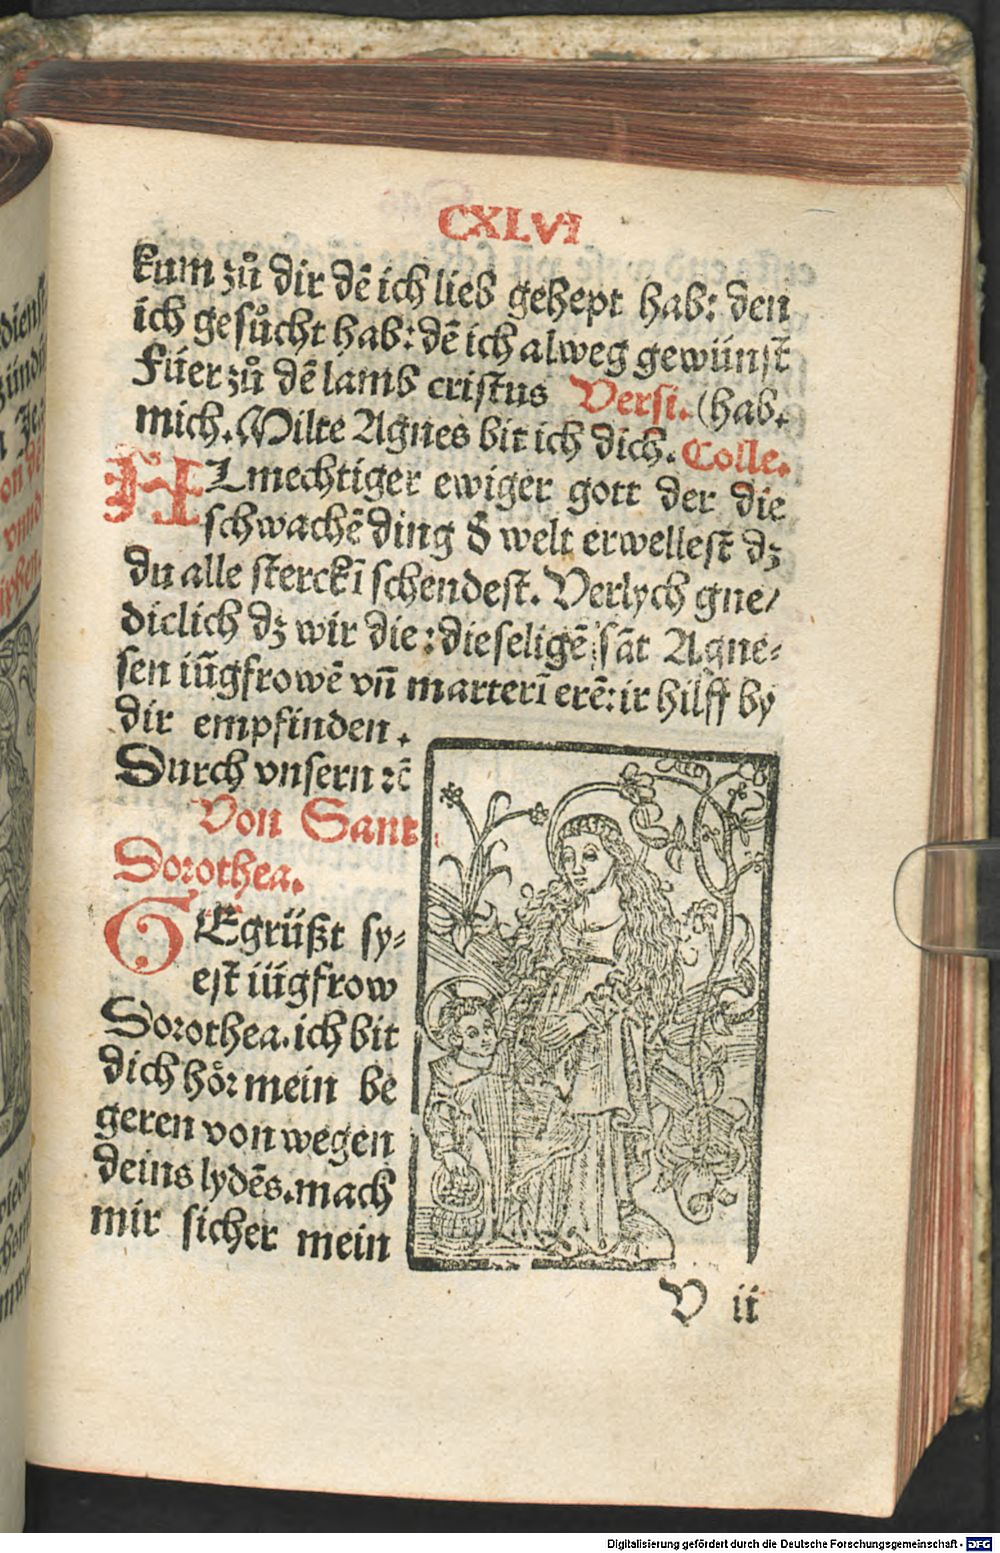 CXLVI
kum zů dir dē ich lieb gehept hab: den
ich gesůcht hab: dē ich alweg gewünst
Füer zů dē lamb cristus Versi. (hab.
mich. Milte Agnes bit ich dich. Colle.
ALmechtiger ewiger gott der die
schwachē ding δ welt erwellest dz
du alle sterckī schendest. Verlych gne/
diclich dz wir die: die seligē sāt Agne-
sen iūgfrowē vn̄ marterī erē: ir hilff by
dir empfinden.
Durch vnsern ꝛc̄
Von Sant
Dorothea.
GEgrüßt sy-
est iūgfrow
Dorothea. ich bit
dich hör mein be
geren von wegen
deins lydēs. mach
mir sicher mein
V ii
Digitalisierung gefördert durch die Deutsche Forschungsgemeinschaft - DFG